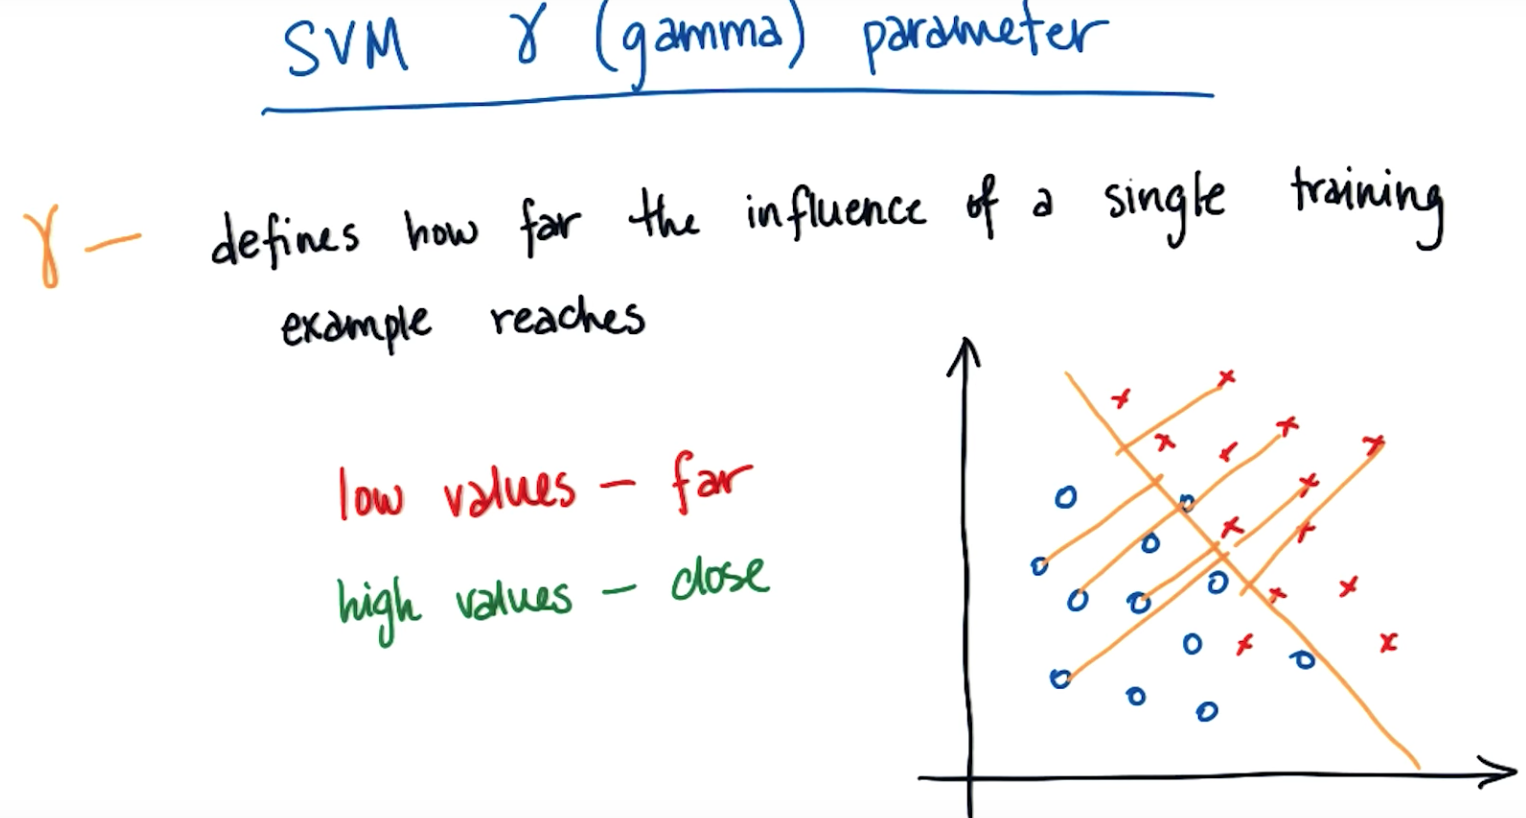 SVM γ (gamma) parameter
γ — defines how far the influence of a single training
example reaches
low values - far
high values - close